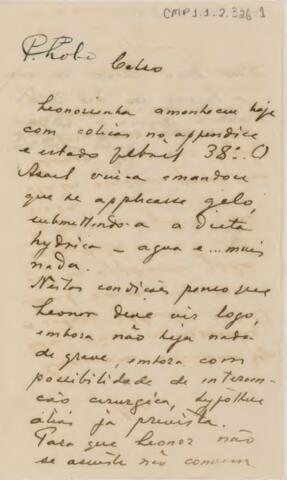 CMP 1.1.2.326-1
P. Lobo
Celso
Leonorzinha amanheceu hoje
com colicas no appendice
e estado febril 38º. O
Asael viu-a e mandou
que se applicasse gelo,
submettendo-a a dieta
hydrica – agua e... mais
nada.
Nestas condições penso que
Leonor deve vir logo,
embora não haja nada
de grave, embora com
possibilidade de interven-
cão cirurgica, hypothese
aliás já prevista.
Para que Leonor não
se assuste não convem